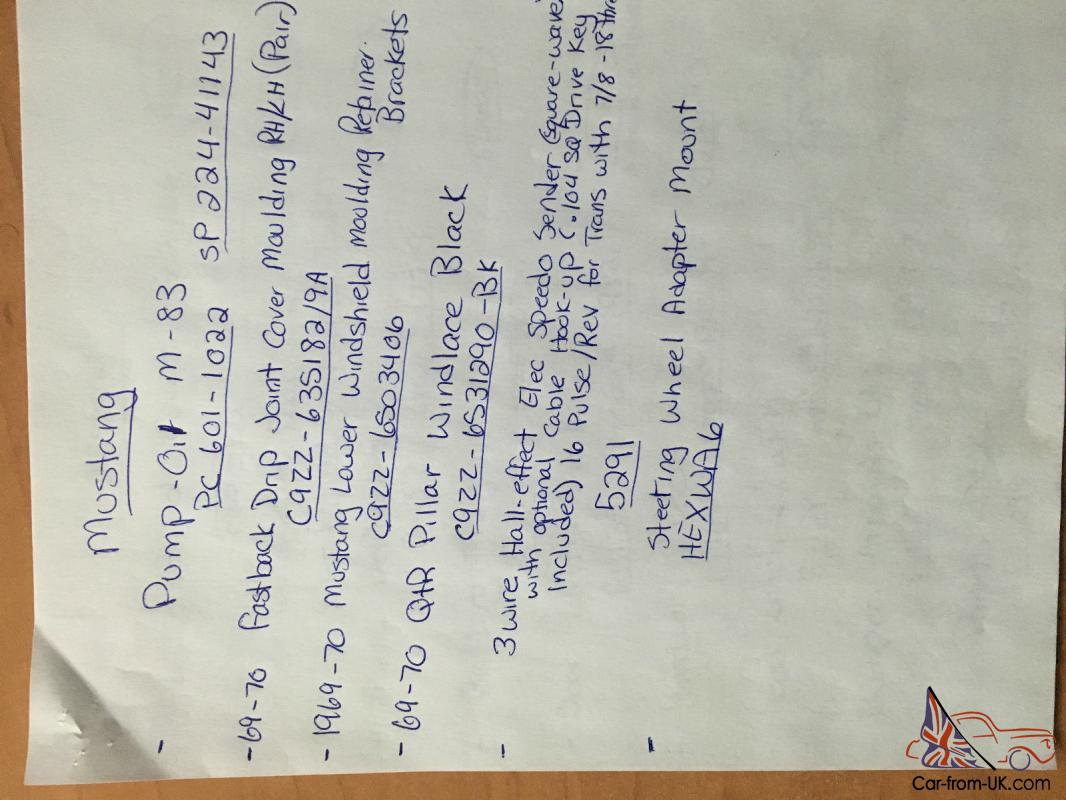 Mustang
- Pump-Oil M-83
PC 601-1022 SP 224-41143
- 69-70 Fastback Drip Joint Cover Moulding RH/LH (Pair)
C9ZZ-6351821/9A
- 1969-70 Mustang Lower Windshield Moulding Retainer
Brackets
C9ZZ-6503406
- 69-70 QtR Pillar Windlace Black
C9ZZ-6531290-BK
- 3 wire Hall-effect Elec Speedo Sender (square-wave)
with optional Cable Hook-up (.104 SQ Drive Key
Included) 16 Pulse/Rev for Trans with 7/8-18
5291
- Steeting Wheel Adapter Mount
HEXWA6
Car-from-UK.com